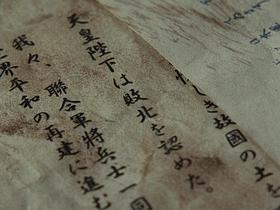 しき故國の土
天皇陛下は敗北を認めた。
我々、聯合軍將兵士一同
世界平和の再建に進む